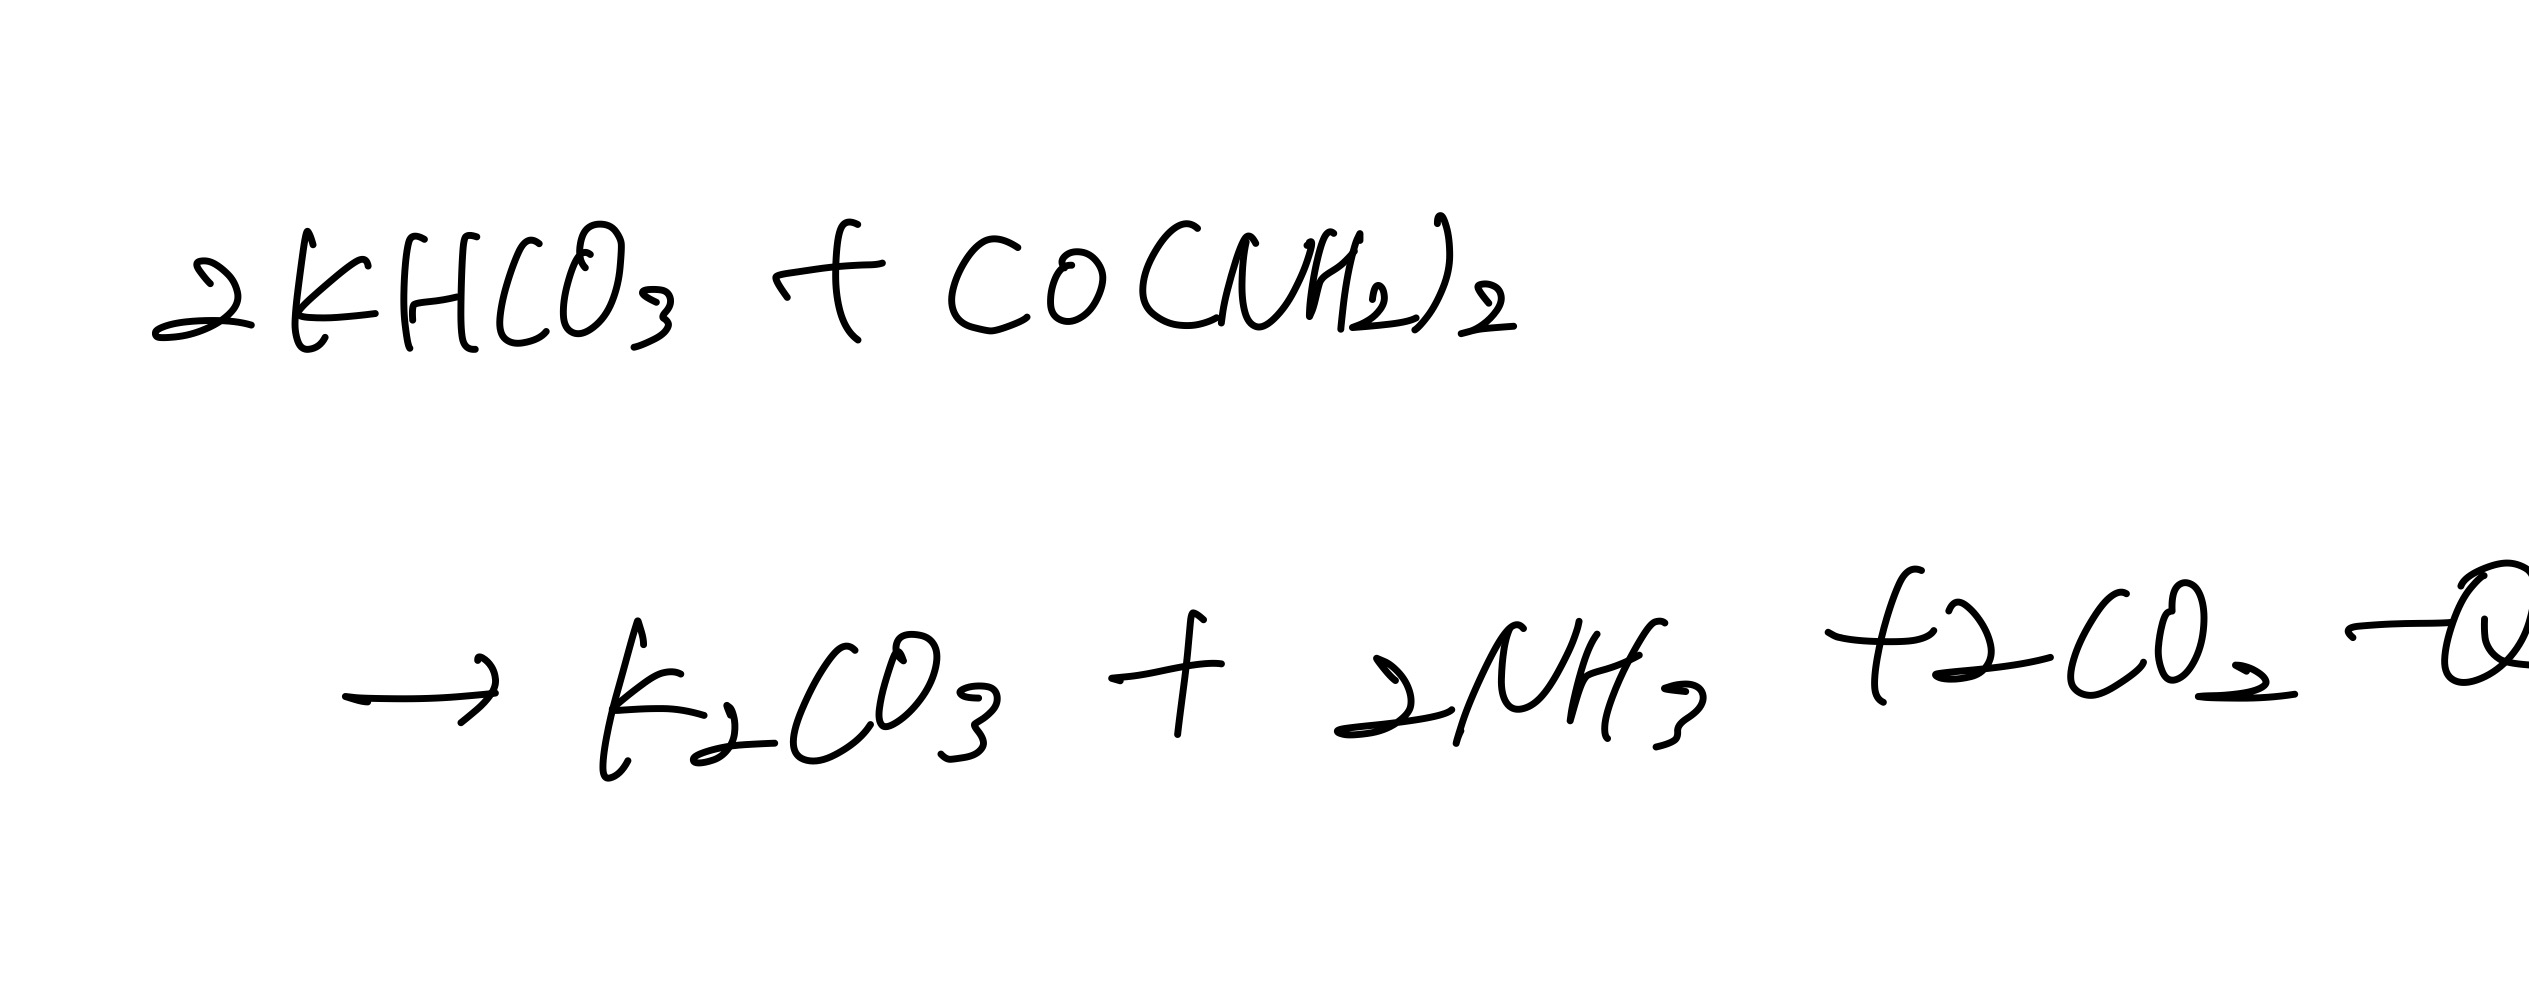 2KHCO₃ + CO(NH₂)₂
→ K₂CO₃ + 2NH₃ + 2CO₂ - Q